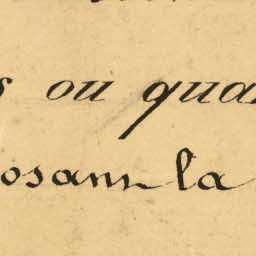 s ou qua
osant la